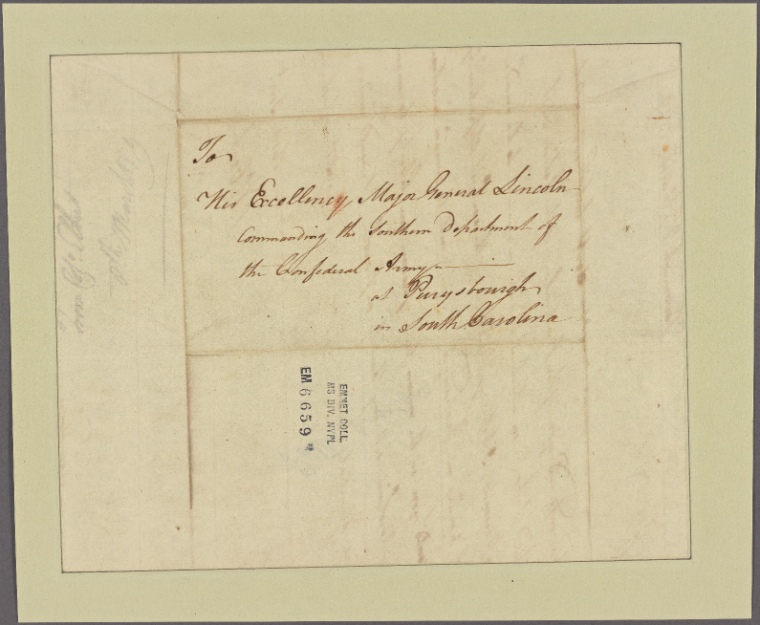 To
His Excellency Major General Lincoln
Commanding the Southern Department of
the Confederal Army
at Purysbourgh
in South Carolina
EMMET COLL.
MS DIV. NYPL
EM 6659
from